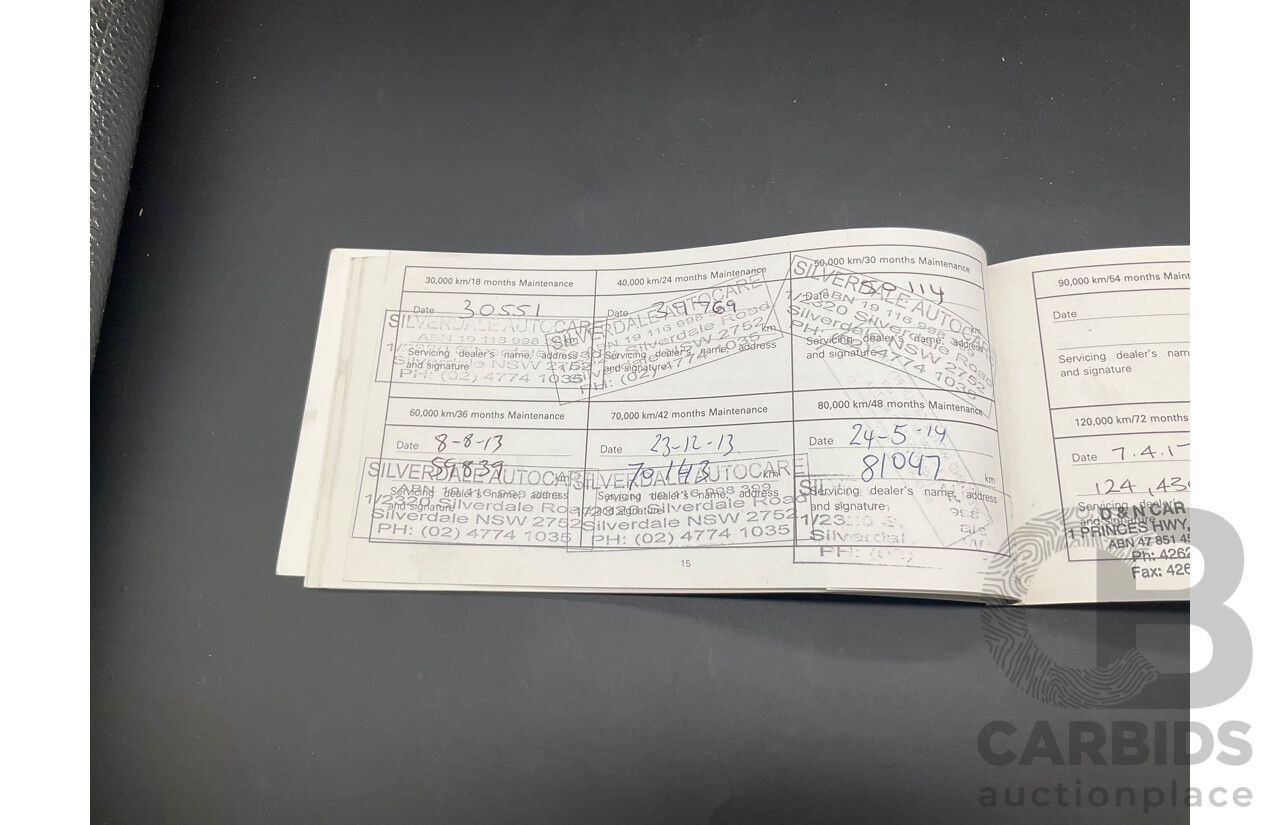 30,000 km/18 months Maintenance
Date 30551
SILVERDALE AUTOCARE
ABN 19 116 998
km
Servicing dealer's name, address
and signature
Silverdale NSW 2752
PH: (02) 4774 1035
40,000 km/24 months Maintenance
Date
SILVERDALE AUTOCARE
ABN 19 116 998
km
Silverdale Road
Servicing dealer's name, address
and signature
Silverdale NSW 2752
PH: (02) 4774 1035
50,000 km/30 months Maintenance
50114
SILVERDALE AUTOCARE
Date
ABN 19 116 998
km
1/2320 Silverdale Road
Servicing dealer's name, address
and signature
Silverdale NSW 2752
PH: (02) 4774 1035
60,000 km/36 months Maintenance
Date 8-8-13
59839
SILVERDALE AUTOCARE
km
Servicing dealer's name, address
and signature
1/2320 Silverdale Road
Silverdale NSW 2752
PH: (02) 4774 1035
70,000 km/42 months Maintenance
Date 23-12-13
70143
km
SILVERDALE AUTOCARE
Servicing dealer's name, address
and signature
1/2320 Silverdale Road
Silverdale NSW 2752
PH: (02) 4774 1035
80,000 km/48 months Maintenance
Date 24-5-14
81047 km
Servicing dealer's name, address
and signature
1/2320
PH: (02)
15
90,000 km/54 months Maint
Date
Servicing dealer's nam
and signature
120,000 km/72 months
Date 7.4.1
124,43
Servicing
and signature
D & N CAR
1 PRINCES HWY,
ABN 47 851
Ph: 4262
Fax: 426
CB
CARBIDS
auctionplace